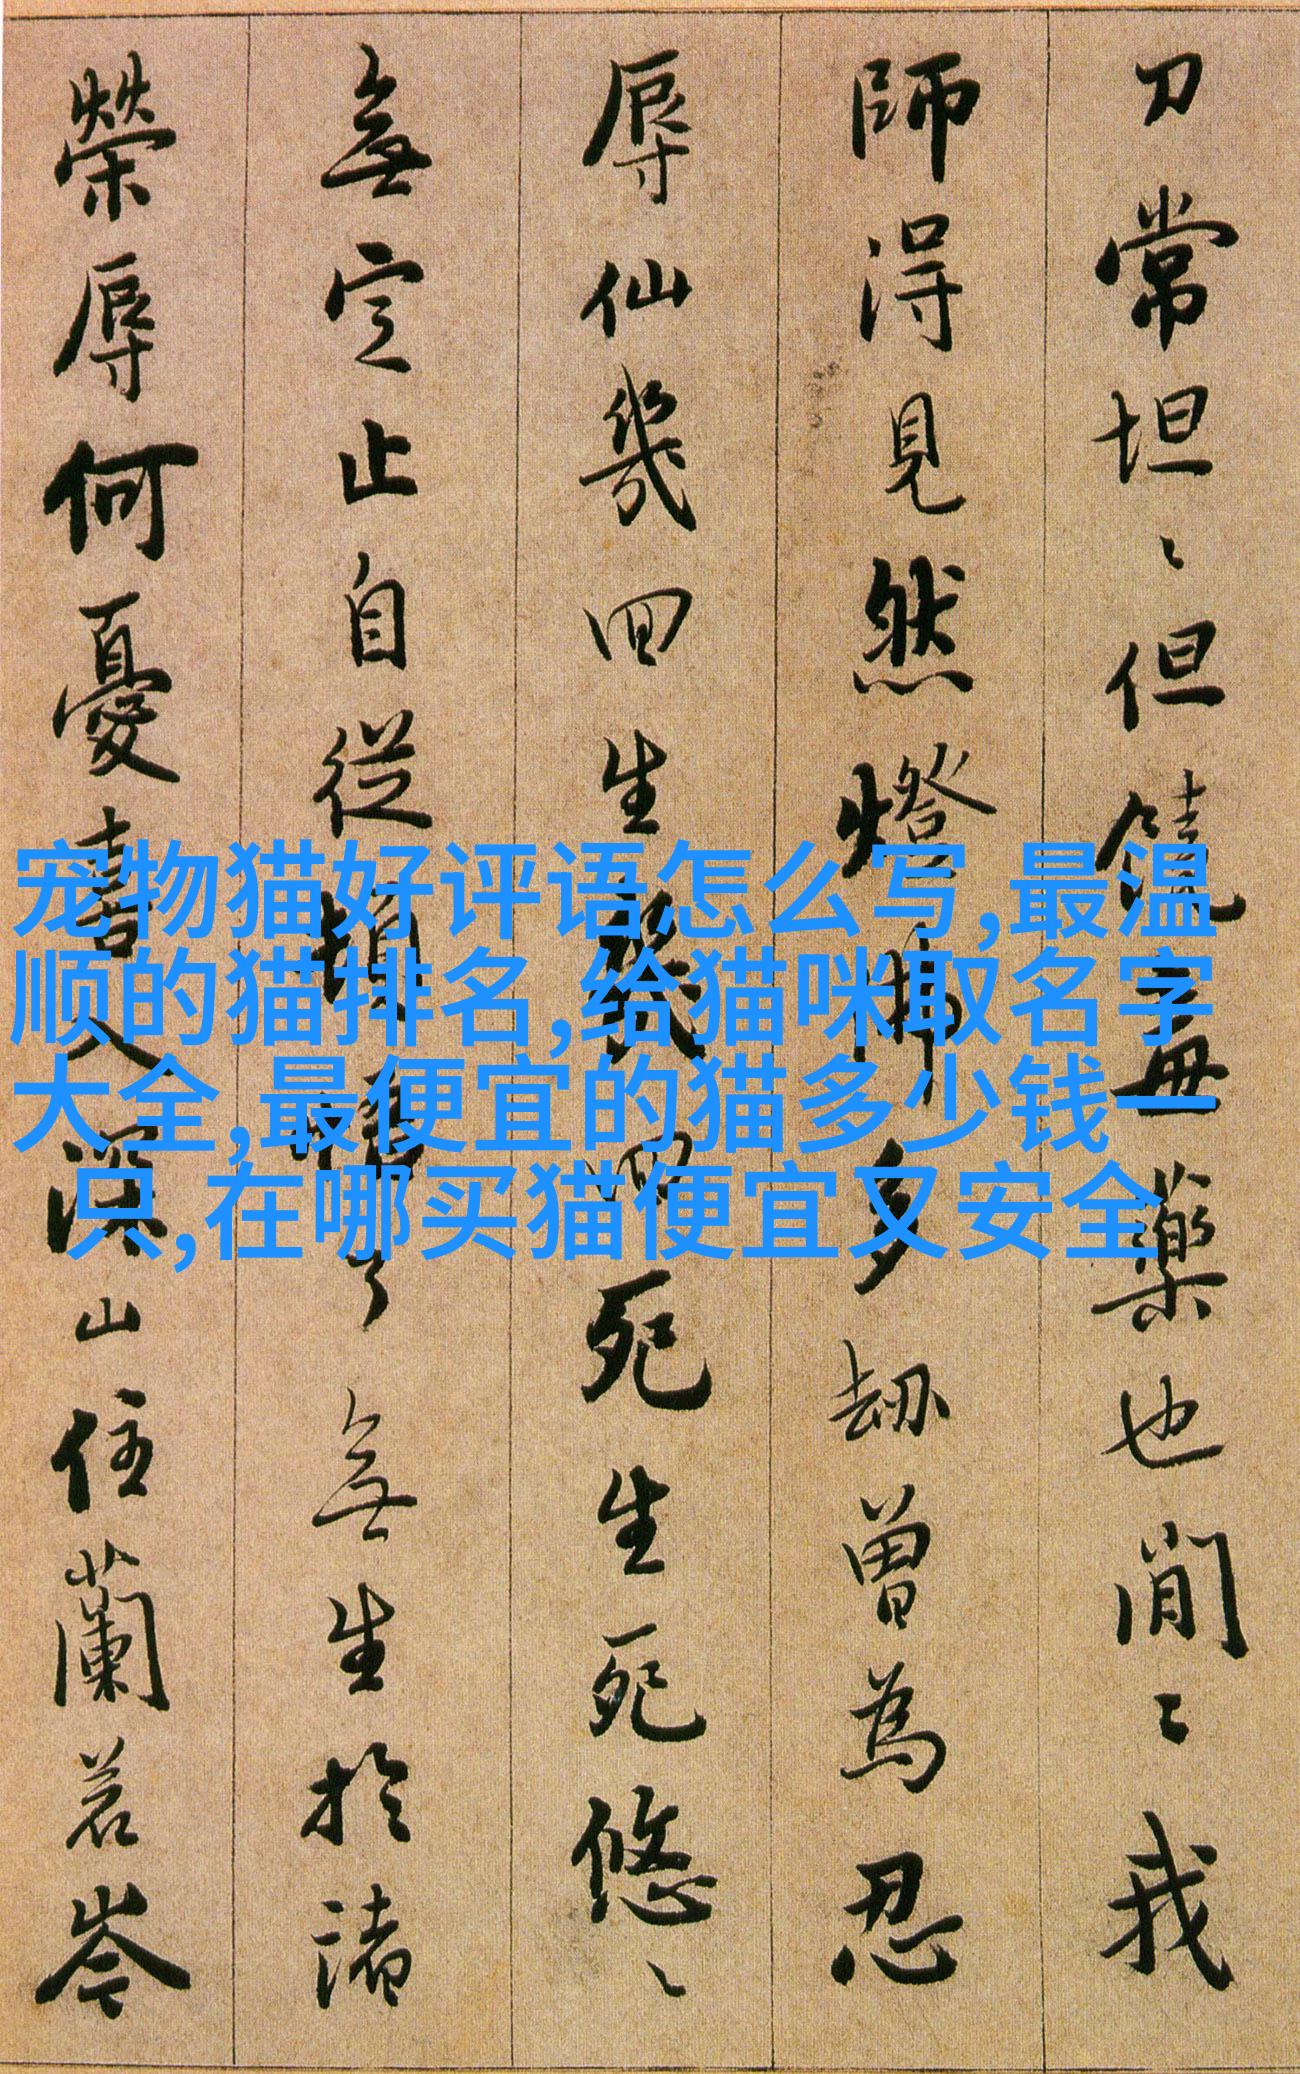 刀常坦〻但饒毒藥也閒〻我
師得見然燈佛多劫曾為忍
辱仙幾回生幾回死生死悠〻
無定止自從頓悟了無生於諸
榮辱何憂喜入深山住蘭若岑
宠物猫好评语怎么写,最温
顺的猫排名,给猫咪取名字
大全,最便宜的猫多少钱一
只,在哪买猫便宜又安全